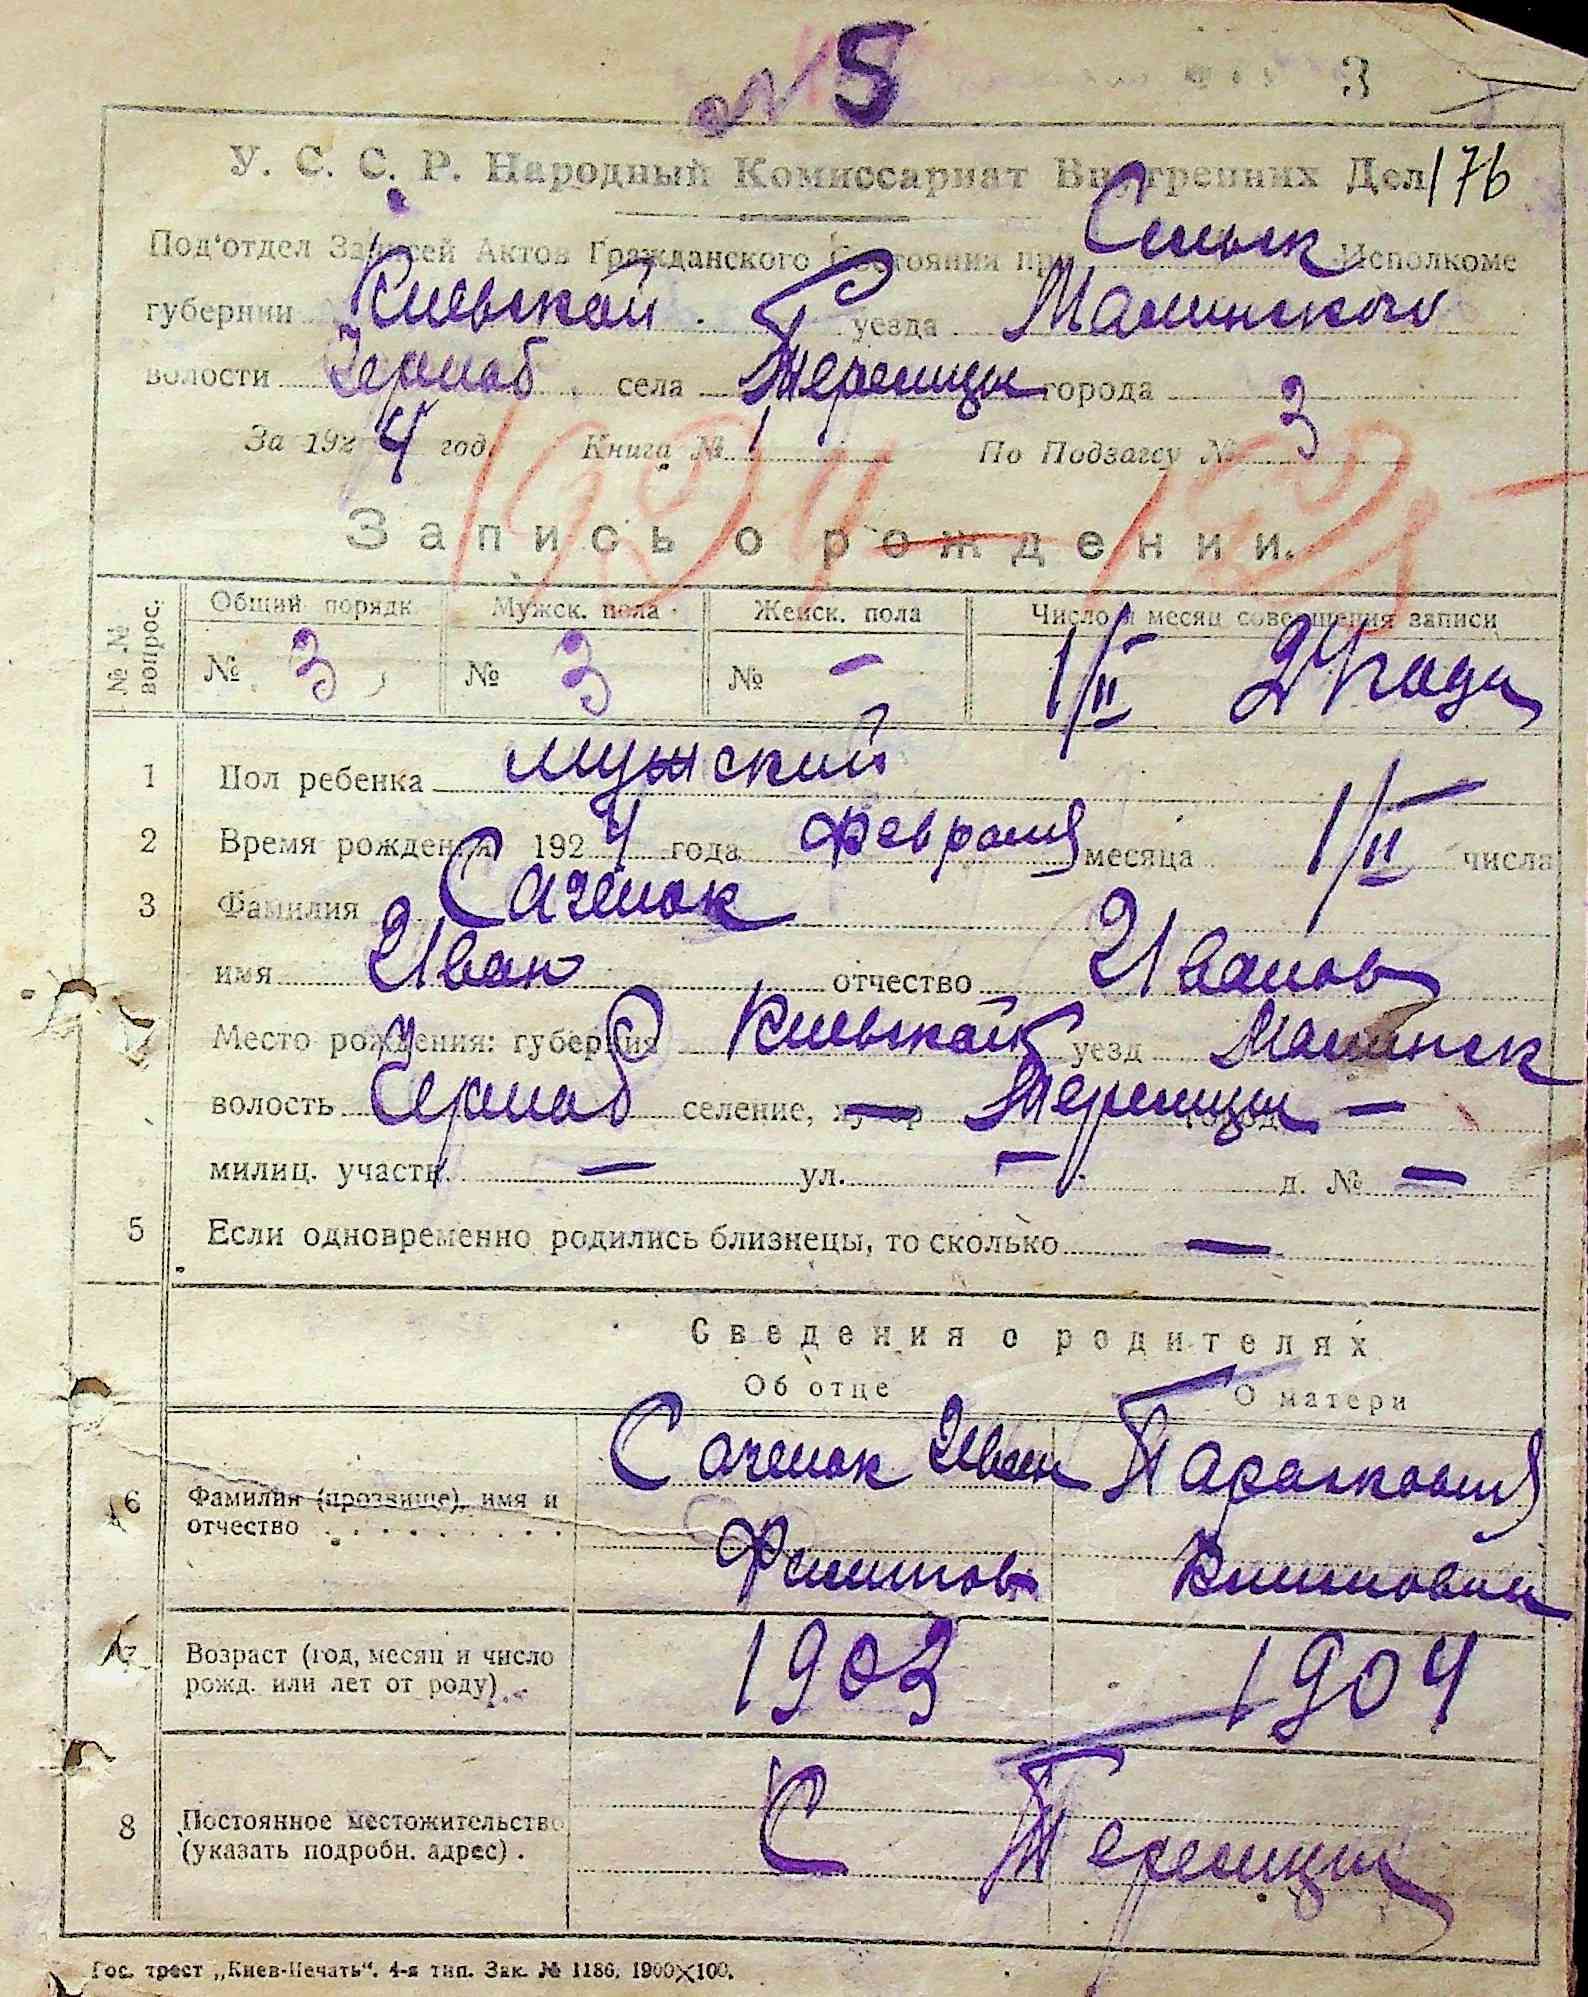 № 5 3
У. С. С. Р. Народный Комиссариат Внутренних Дел 176
Под'отдел Записей Актов Гражданского Состояния при Сельск Исполкоме
губернии Киевской уезда Малинского
волости села города
За 1924 год. Книга № 1 По Подзагсу № 3
Запись о рождении.
№ № вопрос. Общий порядк Мужск. пола Женск. пола Число и месяц совершения записи
№ 3 № 3 № – 1/II 24 года
1 Пол ребенка мужский
2 Время рождения 1924 года февраля месяца 1/II числа
3 Фамилия Саченок
имя Иван отчество Иванов
Место рождения: губерния Киевской уезд Малинск
волость селение, хутор — город —
милиц. участк. — ул. — д. № —
5 Если одновременно родились близнецы, то сколько —
Сведения о родителях
Об отце О матери
6 Фамилия (прозвище), имя и отчество Саченок Иван
Филипов
7 Возраст (год, месяц и число рожд. или лет от роду) 1903 1904
8 Постоянное местожительство (указать подробн. адрес). С
Гос. трест „Киев-Печать“. 4-я тип. Зак. № 1186. 1900×100.